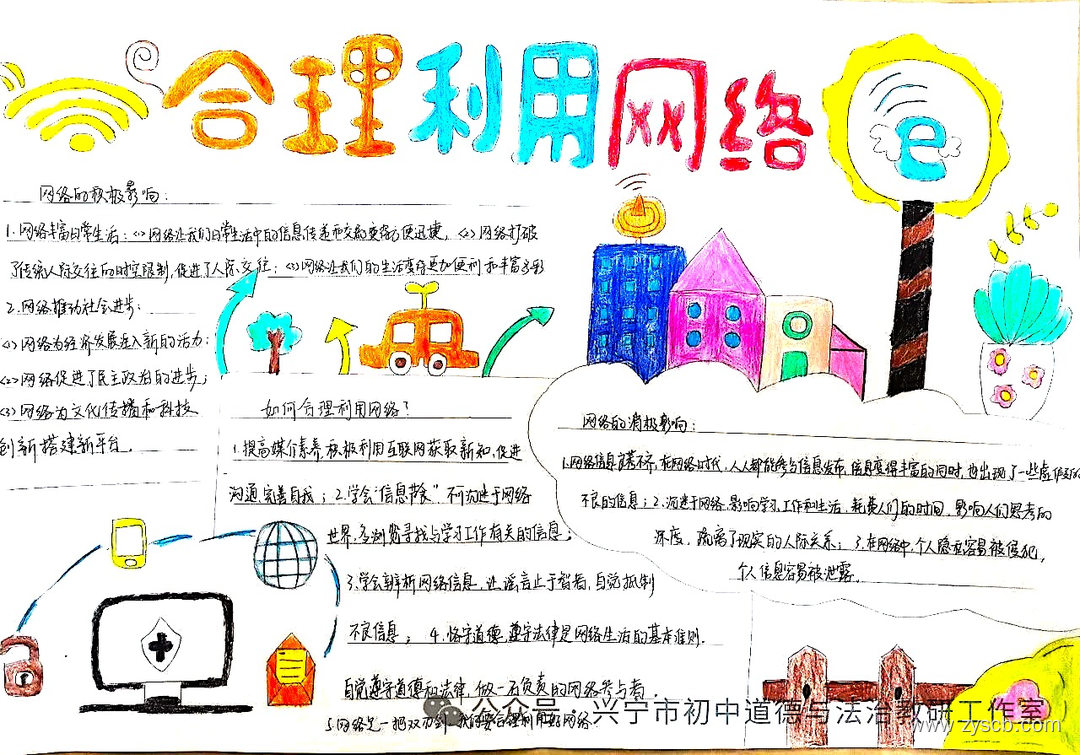 合理利用网络
e
网络的积极影响：
1.网络丰富日常生活：<1>网络让我们日常生活中的信息传递和交流变得方便迅捷，<2>网络打破
了传统人际交往的时空限制，促进了人际交往；<3>网络让我们的生活变得更加便利和丰富多彩
2.网络推动社会进步：
<1>网络为经济发展注入新的活力；
<2>网络促进了民主政治的进步；
<3>网络为文化传播和科技
创新搭建新平台.
如何合理利用网络？
1.提高媒介素养，积极利用互联网获取新知，促进
沟通，完善自我；2.学会“信息节食”不沉迷于网络
世界，多浏览寻找与学习工作有关的信息；
3.学会辨析网络信息，让谣言止于智者，自觉抵制
不良信息； 4.恪守道德，遵守法律是网络生活的基本准则.
自觉遵守道德和法律，做一名负责的网络参与者.
5.网络是一把双刃剑，我们要合理利用好网络
网络的消极影响：
1.网络信息良莠不齐，在网络时代，人人都能参与信息发布，信息变得丰富的同时，也出现了一些虚假的
不良的信息；2.沉迷于网络，影响学习、工作和生活，耗费人们的时间，影响人们思考的
深度，疏离了现实的人际关系；3.在网络中，个人隐私容易被侵犯，
个人信息容易被泄露.
公众号·兴宁市初中道德与法治教研工作室
www.zyscb.com